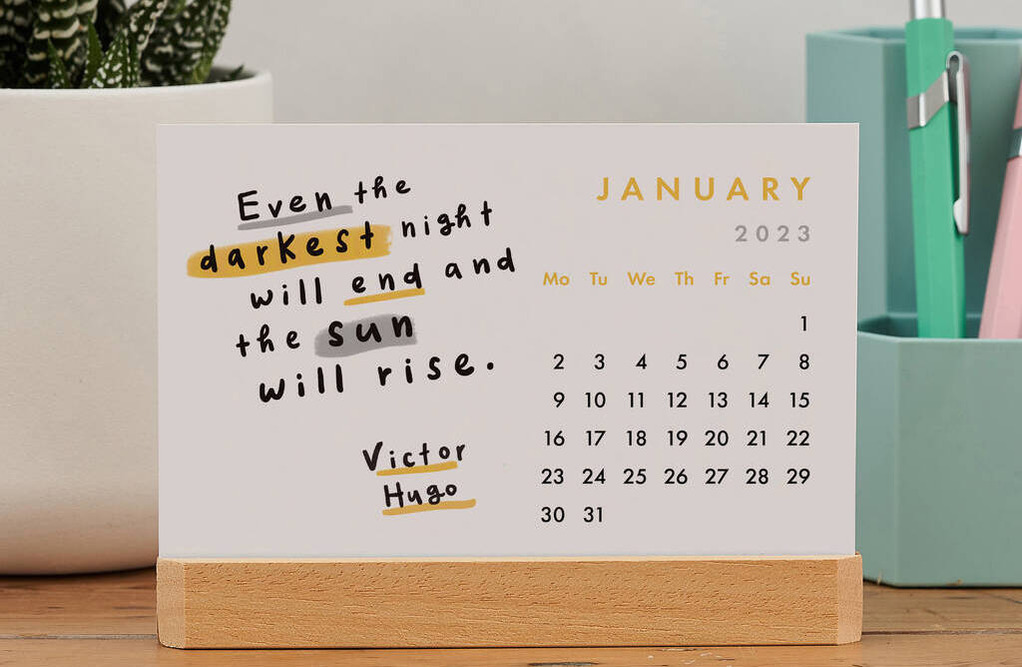 Even the
darkest night
will end and
the sun
will rise.
Victor
Hugo
JANUARY
2023
Mo Tu We Th Fr Sa Su
1
2 3 4 5 6 7 8
9 10 11 12 13 14 15
16 17 18 19 20 21 22
23 24 25 26 27 28 29
30 31